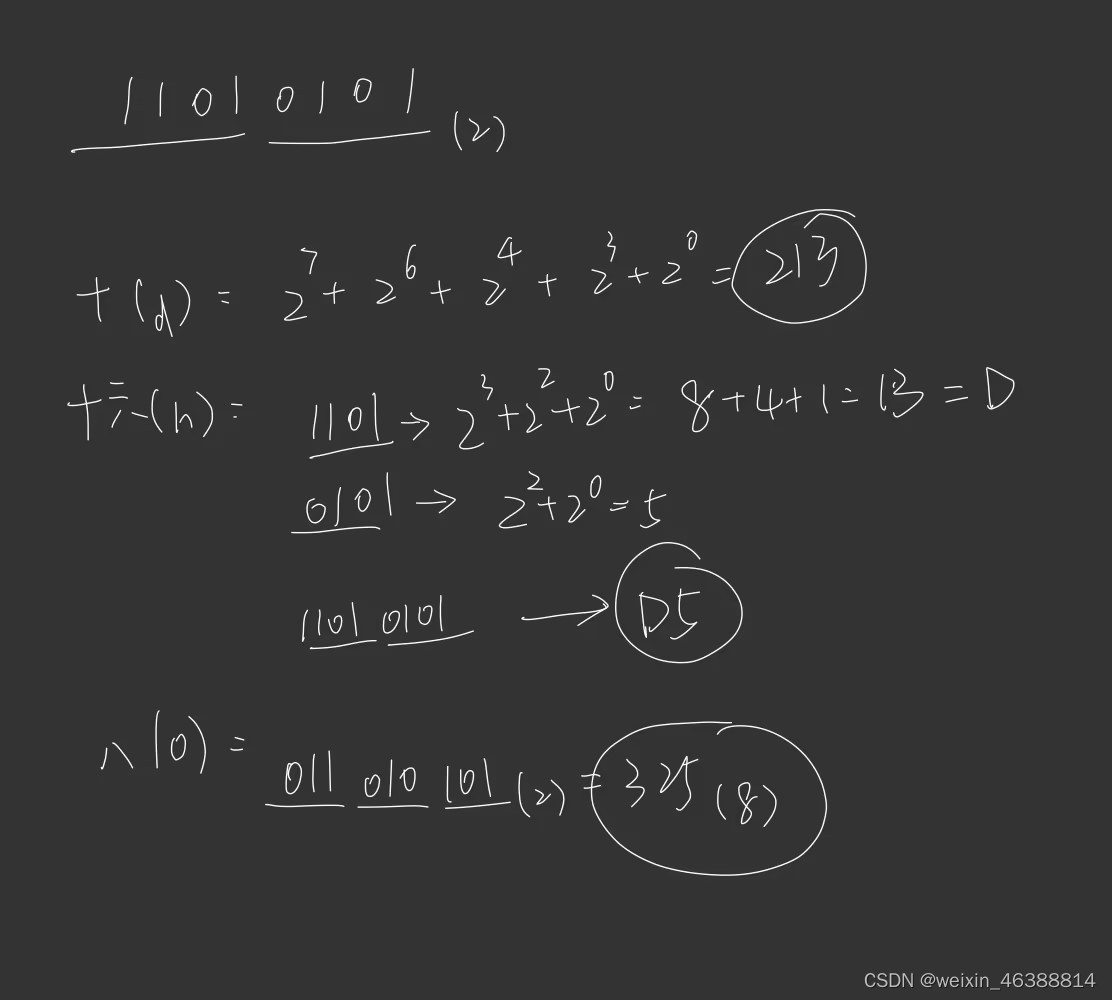 1101 0101 (2)
十(d) = 2^7 + 2^6 + 2^4 + 2^3 + 2^0 = 213
十六(h) = 1101 → 2^3+2^2+2^0 = 8+4+1=13 = D
0101 → 2^2+2^0=5
1101 0101 → D5
八(o) = 011 010 101 (2) = 325 (8)
CSDN @weixin_46388814